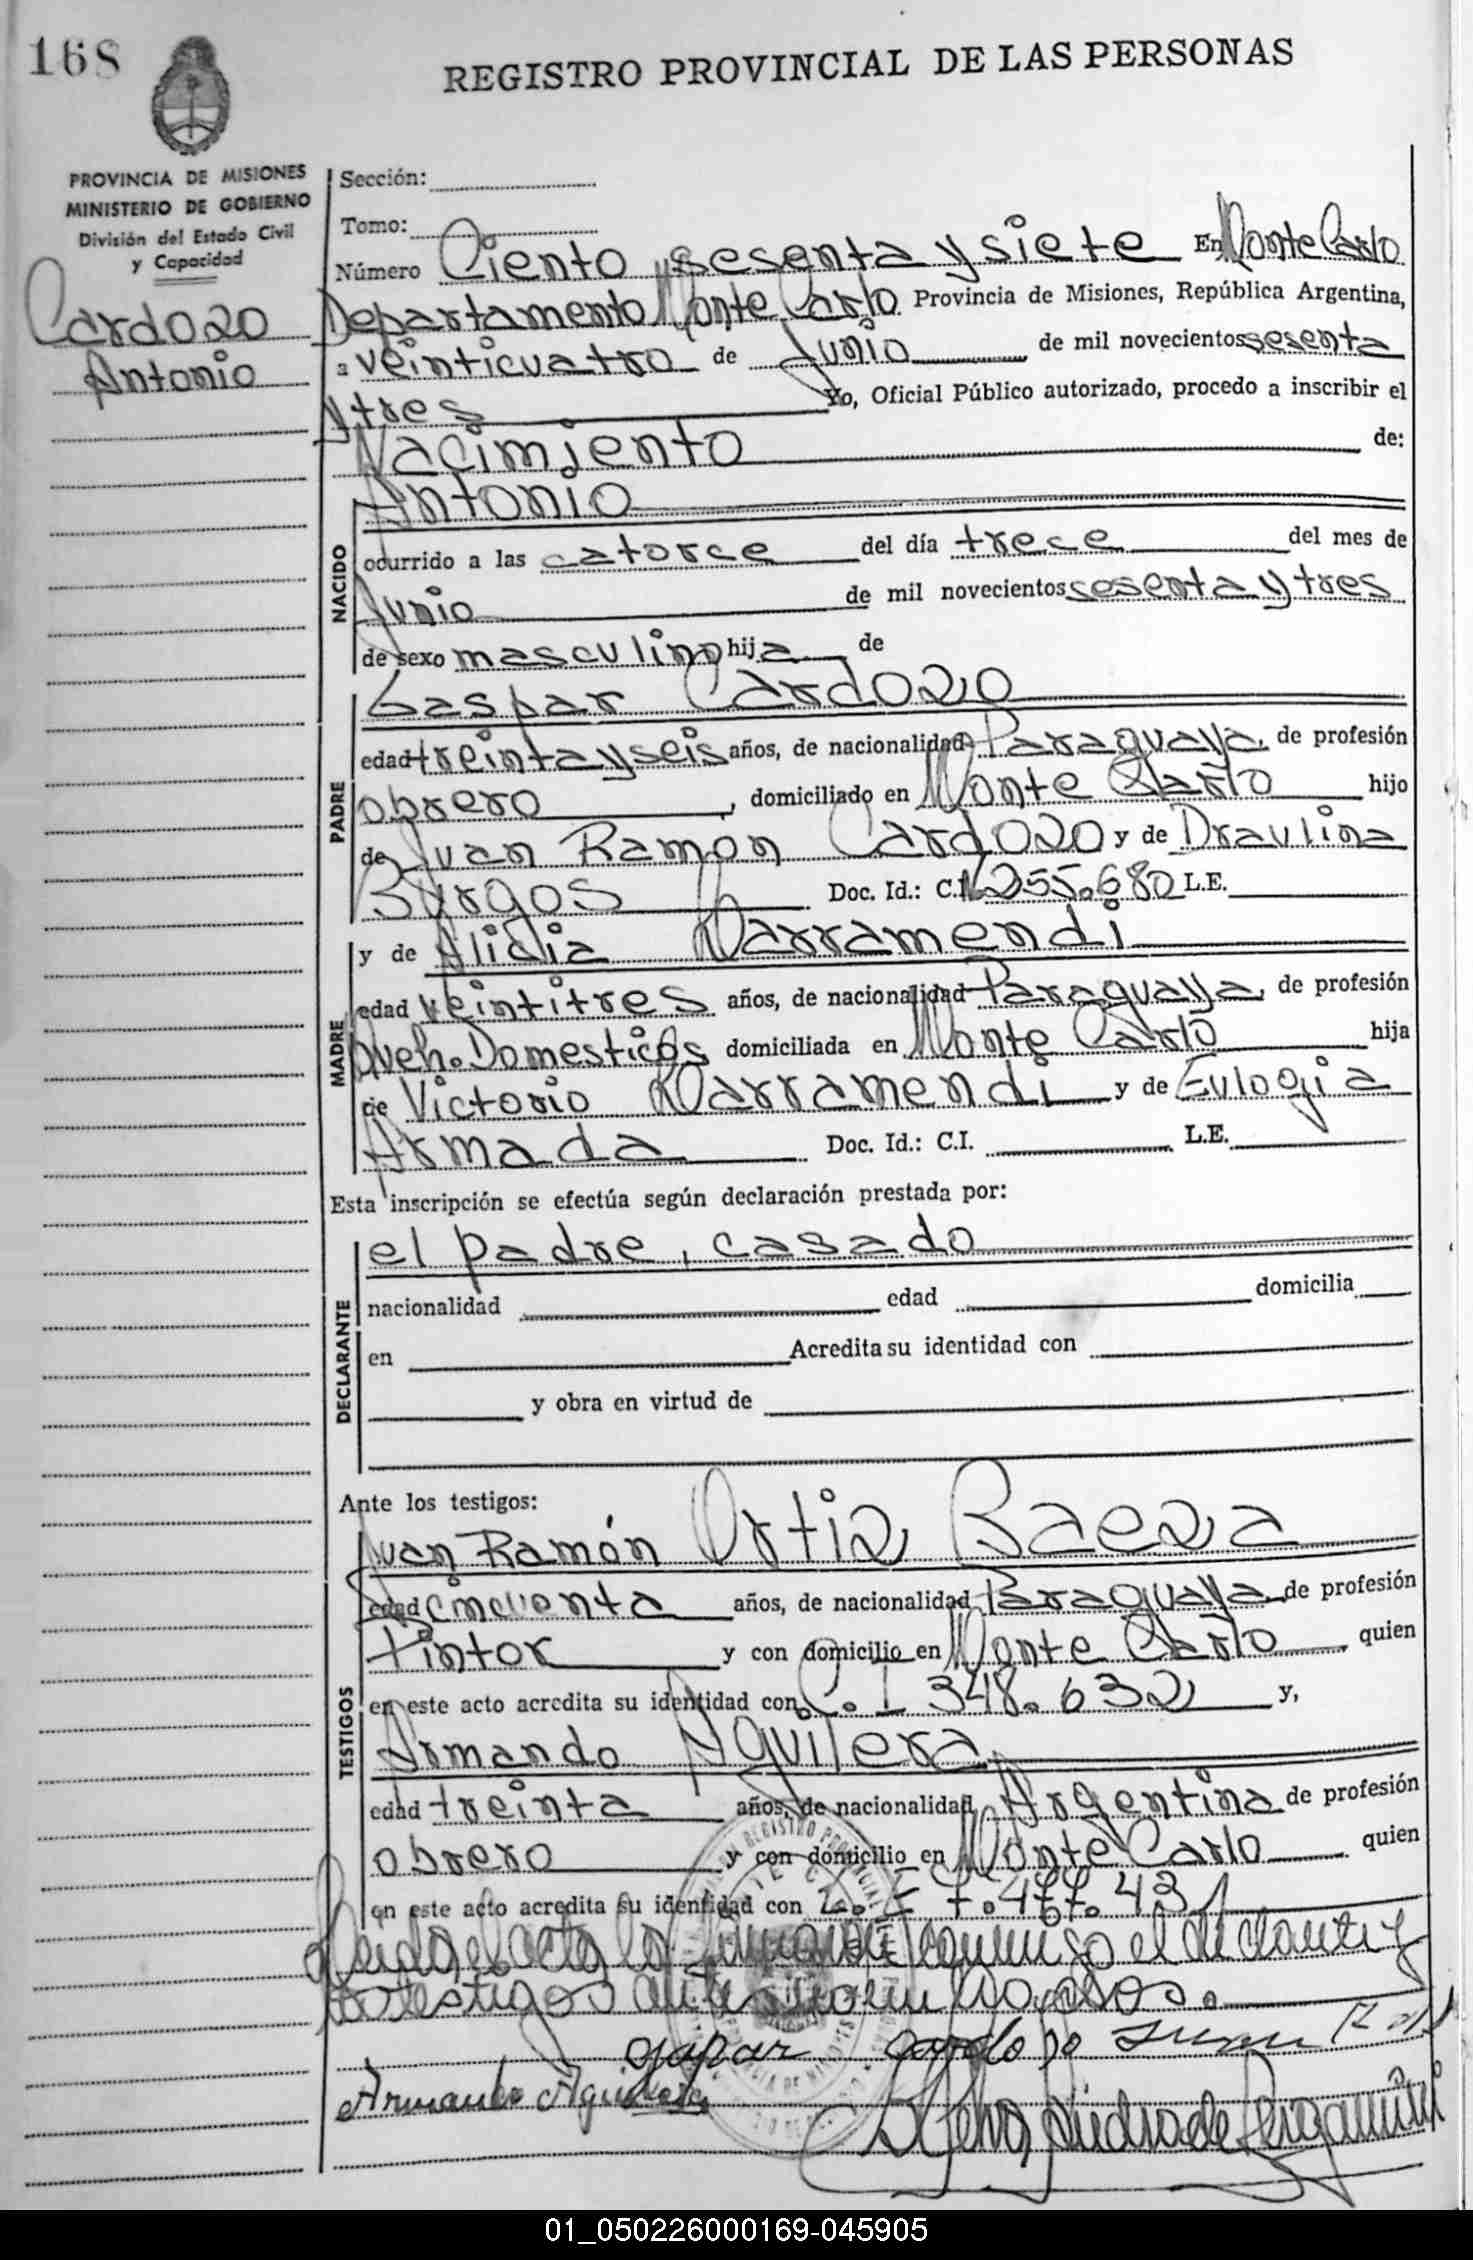 168
REGISTRO PROVINCIAL DE LAS PERSONAS
PROVINCIA DE MISIONES
MINISTERIO DE GOBIERNO
División del Estado Civil
y Capacidad
Cardozo
Antonio
Sección:
Tomo:
Número Ciento sesenta y siete En Monte Carlo
Departamento Monte Carlo Provincia de Misiones, República Argentina,
a veinticuatro de Junio de mil novecientos sesenta
y tres Yo, Oficial Público autorizado, procedo a inscribir el
Nacimiento de:
NACIDO
Antonio
ocurrido a las catorce del día trece del mes de
Junio de mil novecientos sesenta y tres
de sexo masculino hija de
PADRE
Gaspar Cardozo
edad treinta y seis años, de nacionalidad Paraguaya, de profesión
obrero, domiciliado en Monte Carlo hijo
de Juan Ramon Cardozo y de Draulina
Burgos Doc. Id.: C.I. 255.680 L.E.
MADRE
y de Alidia Larramendi
edad veintitres años, de nacionalidad Paraguaya, de profesión
Queh. Domesticos domiciliada en Monte Carlo hija
de Victorio Larramendi y de Eulogia
Armada Doc. Id.: C.I. L.E.
Esta inscripción se efectúa según declaración prestada por:
DECLARANTE
el padre, casado
nacionalidad edad domicilia
en Acredita su identidad con
y obra en virtud de
Ante los testigos:
TESTIGOS
Juan Ramón Ortiz Baeza
edad cincuenta años, de nacionalidad Paraguaya de profesión
Pintor y con domicilio en Monte Carlo quien
en este acto acredita su identidad con C. I 348.632 y,
Armando Aguilera
edad treinta años, de nacionalidad Argentina de profesión
obrero y con domicilio en Monte Carlo quien
en este acto acredita su identidad con L. E 7.477.431
Leida el acta la firmande conmigo el declante y
los testigos
gapar cardozo Juan
Armando Aguilera
01_050226000169-045905